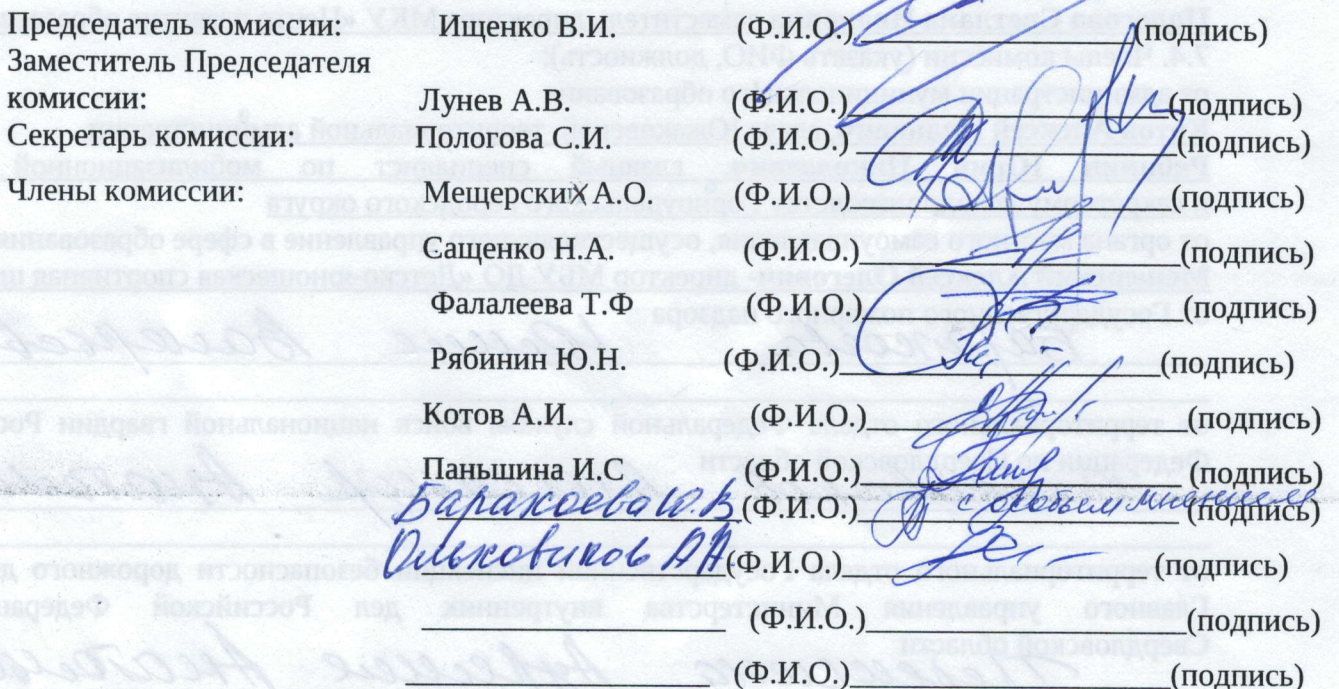 Председатель комиссии: Ищенко В.И. (Ф.И.О.) (подпись)
Заместитель Председателя
комиссии: Лунев А.В. (Ф.И.О.) (подпись)
Секретарь комиссии: Пологова С.И. (Ф.И.О.) (подпись)
Члены комиссии: Мещерских А.О. (Ф.И.О.) (подпись)
Сащенко Н.А. (Ф.И.О.) (подпись)
Фалалеева Т.Ф (Ф.И.О.) (подпись)
Рябинин Ю.Н. (Ф.И.О.) (подпись)
Котов А.И. (Ф.И.О.) (подпись)
Паньшина И.С (Ф.И.О.) (подпись)
Баракоева И.В (Ф.И.О.) с особым мнением (подпись)
Ольховиков А.А. (Ф.И.О.) (подпись)
(Ф.И.О.) (подпись)
(Ф.И.О.) (подпись)